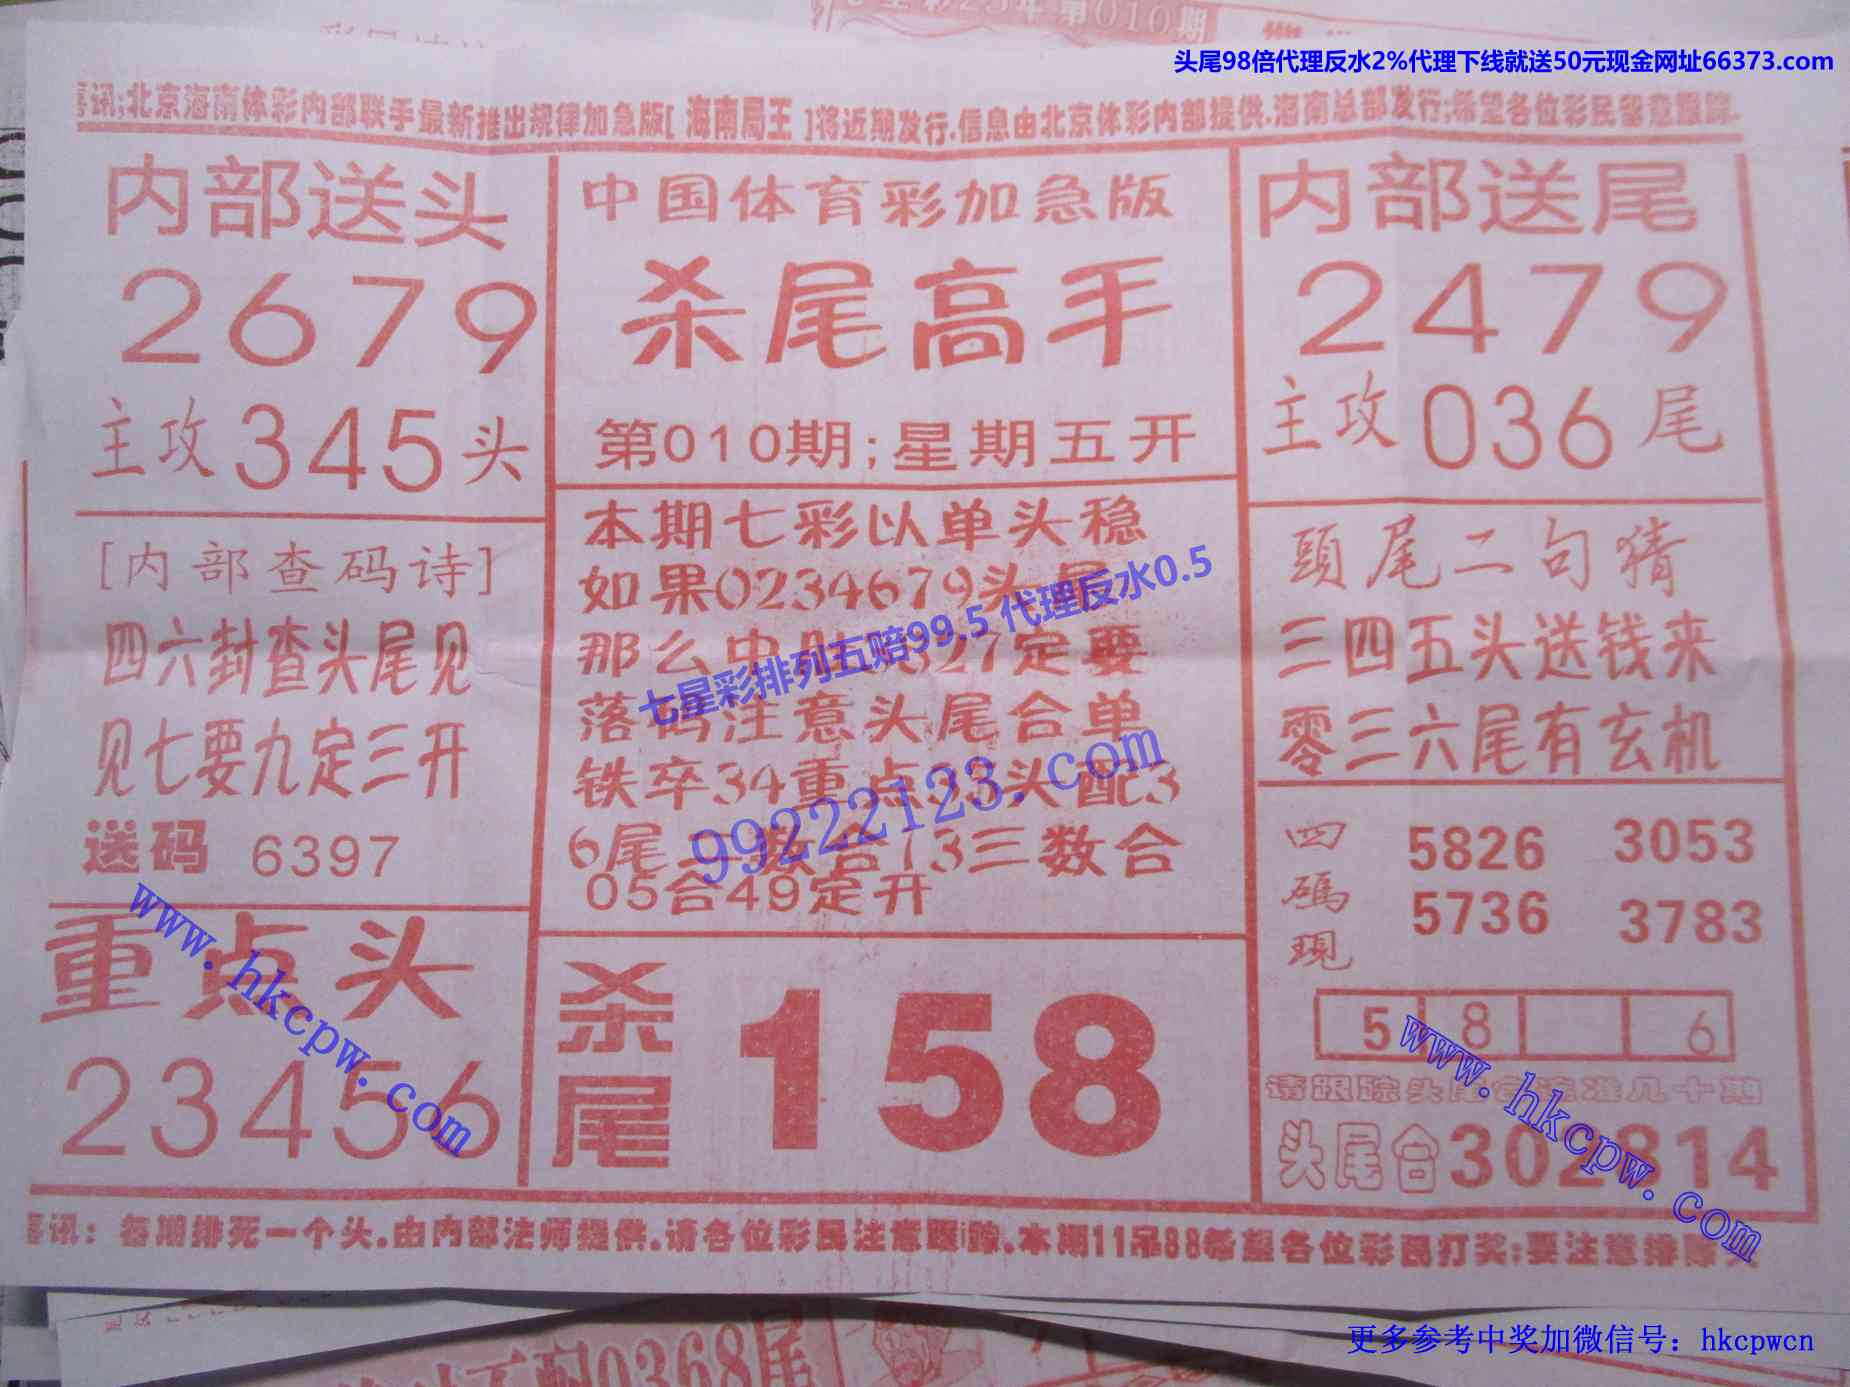 七星彩23年第010期
头尾98倍代理反水2%代理下线就送50元现金网址66373.com
喜讯;北京海南体彩内部联手最新推出规律加急版[海南局王]将近期发行.信息由北京体彩内部提供.海南总部发行;希望各位彩民留意跟踪.
内部送头
2679
主攻345头
[内部查码诗]
四六封查头尾见
见七要九定三开
送码 6397
重点头
23456
中国体育彩加急版
杀尾高手
第010期;星期五开
本期七彩以单头稳
如果0234679头尾
那么中 327定要
落码注意头尾合单
铁卒34重点33头配3
6尾二数合73三数合
05合49定开
杀尾
158
内部送尾
2479
主攻036尾
頭尾二句猜
三四五头送钱来
零三六尾有玄机
四碼現
5826 3053
5736 3783
5 8 6
请跟踪头尾合 准几十期
头尾合302814
喜讯:每期排死一个头.由内部法师提供.请各位彩民注意跟踪.本期11吊88希望各位彩民打奖;要注意排除头
七星彩排列五赔99.5 代理反水0.5
99222123.com
www.hkcpw.com
www.hkcpw.com
0368尾
更多参考中奖加微信号：hkcpwcn